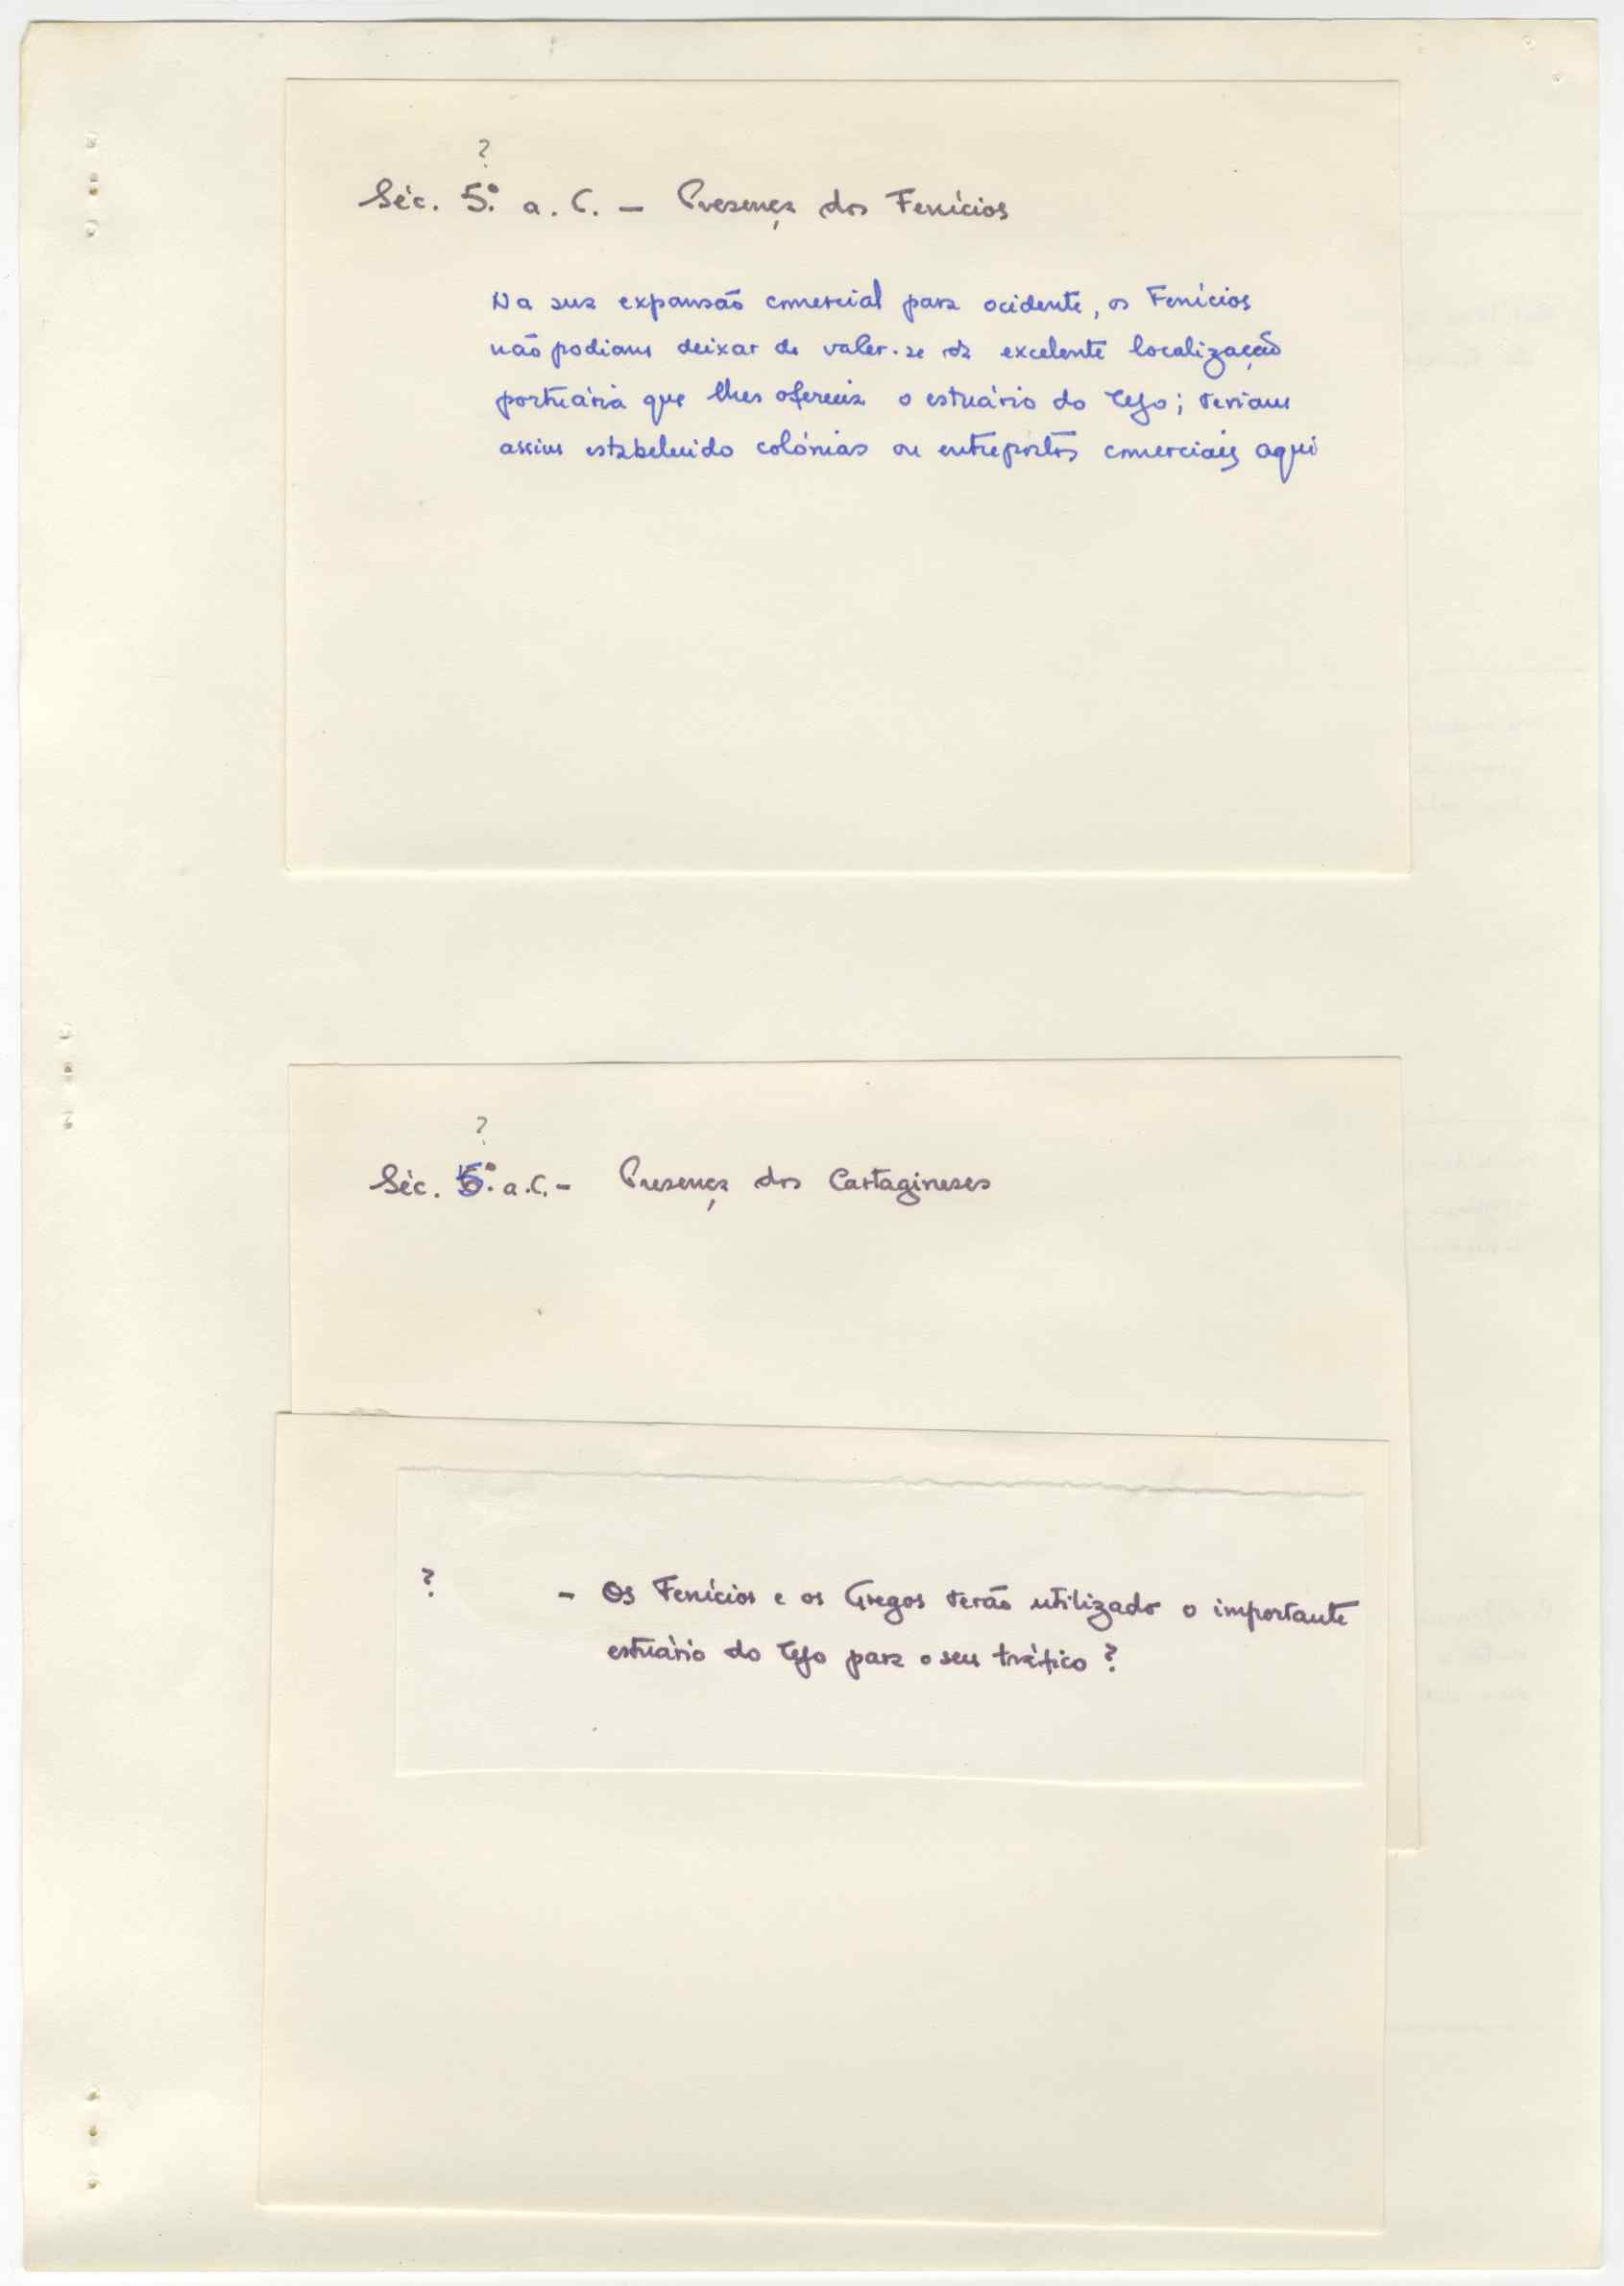 ?
Séc. 5.º a. C. - Presença dos Fenícios
Na sua expansão comercial para ocidente, os Fenícios
não podiam deixar de valer-se da excelente localização
portuária que lhes oferecia o estuário do Tejo; teriam
assim estabelecido colónias ou entrepostos comerciais aqui
?
Séc. 5.º a.C. - Presença dos Cartagineses
? - Os Fenícios e os Gregos terão utilizado o importante
estuário do Tejo para o seu tráfico ?